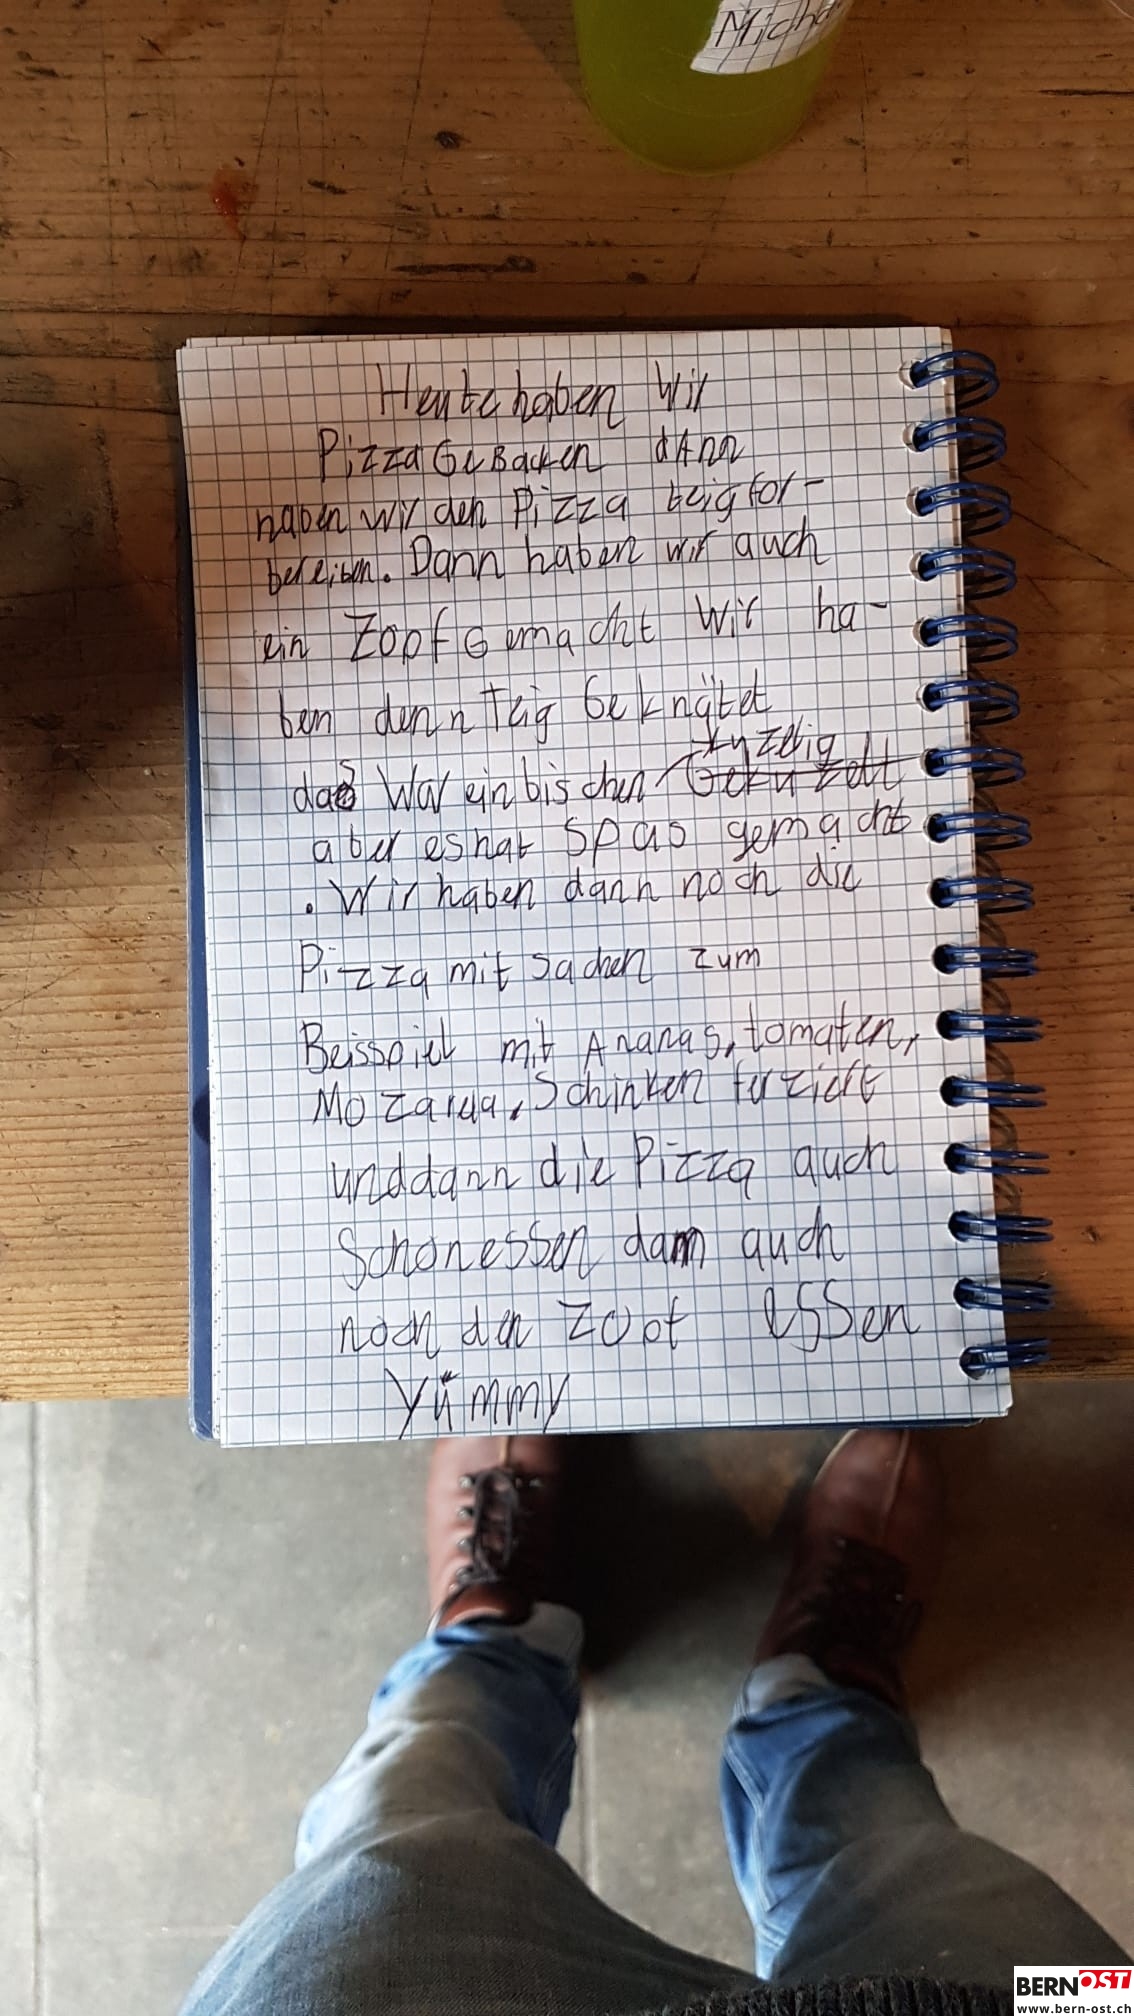 Micha
Heute haben Wir
Pizza GeBacken dAnn
haben wir den Pizza teig for-
bereiten. Dann haben wir auch
ein Zopf Gemacht Wir ha-
ben denn Teig Geknätet
kyzelig
das War ein bischen Gekuzelt
aber es hat Spas gemacht
. Wir haben dann noch die
Pizza mit sachen zum
Beisspiel mit Ananas, tomaten,
Mozarela, Schinken ferziert
und dann die Pizza auch
Schon essen dann auch
noch den Zopf essen
Yümmy
BERNOST
www.bern-ost.ch